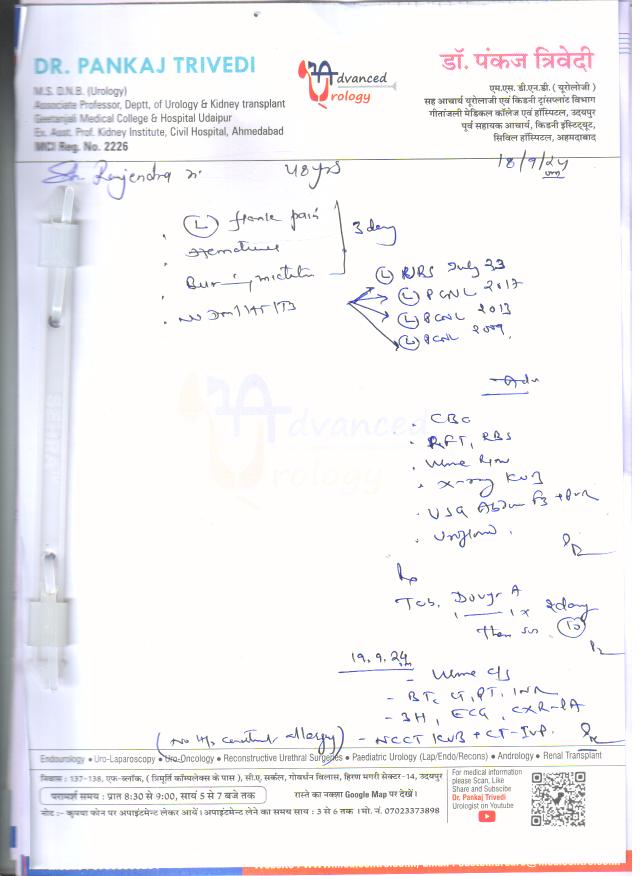 DR. PANKAJ TRIVEDI
M.S. D.N.B. (Urology)
Associate Professor, Deptt. of Urology & Kidney transplant
Geetanjali Medical College & Hospital Udaipur
Ex. Asst. Prof. Kidney Institute, Civil Hospital, Ahmedabad
MCI Reg. No. 2226
Advanced
Urology
डॉ. पंकज त्रिवेदी
एम.एस. डी.एन.डी. ( यूरोलोजी )
सह आचार्य यूरोलाजी एवं किडनी ट्रांसप्लांट विभाग
गीतांजली मेडिकल कॉलेज एवं हॉस्पिटल, उदयपुर
पूर्व सहायक आचार्य, किडनी इंस्टिट्यूट,
सिविल हॉस्पिटल, अहमदाबाद
18/9/24
Rajendra 48yrs
L flank pain
3 day
L RIRS July 23
L PCNL 2017
L PCNL 2013
L PCNL 2009
Adv
CBC
RFT, RBS
Urine R/m
X-ray KUB
USG Abdm + PVR
Uroflow
Tab.
2 day
Then sos 10
19.9.24
- Urine c/s
- BT, CT, PT, INR
- 3H, ECG, CXR-PA
(No H/o contrast allergy) - NCCT KUB + CT-IVP.
Advanced
Urology
Endourology • Uro-Laparoscopy • Uro-Oncology • Reconstructive Urethral Surgeries • Paediatric Urology (Lap/Endo/Recons) • Andrology • Renal Transplant
निवास : 137-138, एफ-ब्लॉक, ( त्रिमूर्ति कॉम्पलेक्स के पास ), सी.ए. सर्कल, गोवर्धन विलास, हिरण मगरी सेक्टर-14, उदयपुर
परामर्श समय : प्रात 8:30 से 9:00, सायं 5 से 7 बजे तक
रास्ते का नक्शा Google Map पर देखें।
नोट :- कृपया फोन पर अपाइंटमेंट लेकर आयें। अपाइंटमेंट लेने का समय सायं : 3 से 6 तक । मो. नं. 07023373898
For medical information
please Scan, Like
Share and Subscibe
Dr. Pankaj Trivedi
Urologist on Youtube